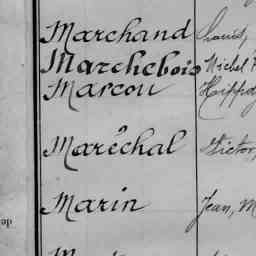 Marchand Louis,
Marchebois Michel
Marcou Hippol
Maréchal Victor,
Marin Jean, M